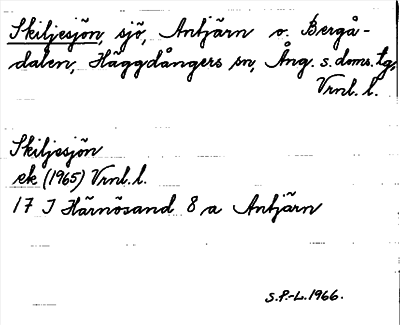 Skiljesjön, sjö, Antjärn o. Bergå-
dalen, Häggdångers sn, Ång. s. doms. tg,
Vrnl. l.
Skiljesjön
ek (1965) Vrnl. l.
17 J Härnösand 8 a Antjärn
S.P.-L. 1966.